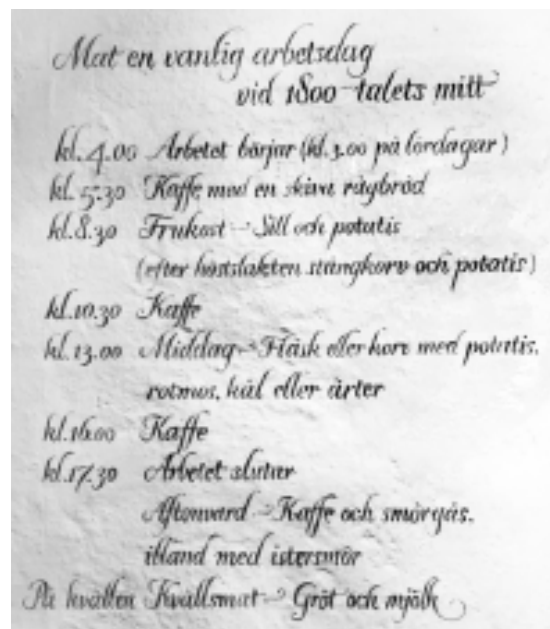 Mat en vanlig arbetsdag
vid 1800-talets mitt
kl. 4.00 Arbetet börjar (kl. 3.00 på lördagar)
kl. 5.30 Kaffe med en skiva rågbröd
kl. 8.30 Frukost - Sill och potatis
(efter höstslakten stångkorv och potatis)
kl. 10.30 Kaffe
kl. 13.00 Middag - Fläsk eller korv med potatis,
rotmos, kål eller ärter
kl. 16.00 Kaffe
kl. 17.30 Arbetet slutar
Aftonvard - Kaffe och smörgås,
ibland med istersmör
På kvällen Kvällsmat - Gröt och mjölk